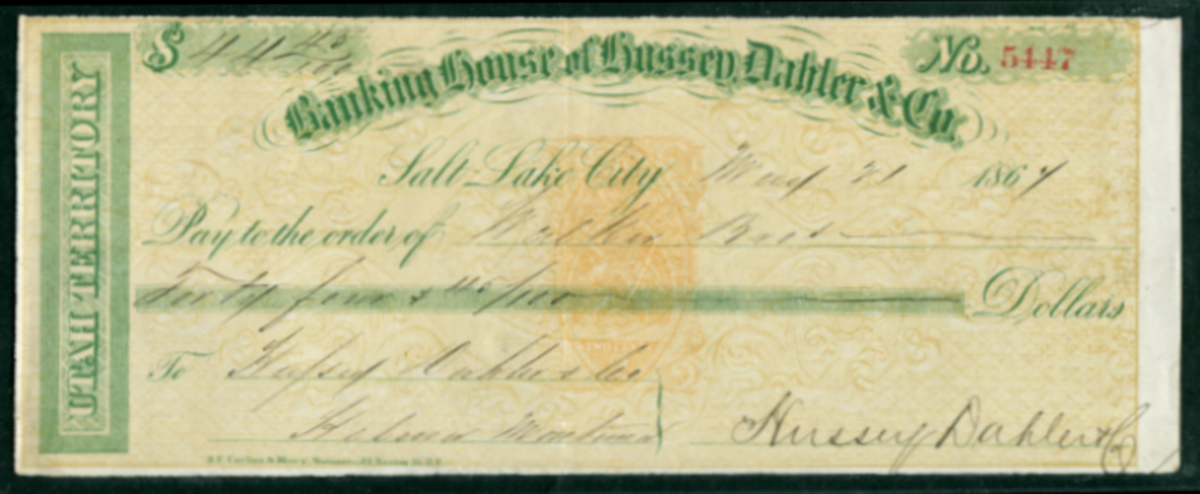 UTAH TERRITORY
$ 44 45/100
No. 5447
Banking House of Hussey, Dahler & Co.
Salt Lake City May 21 1867
Pay to the order of Walker Bros
Forty four & 45/100 Dollars
To Hussey Dahler & Co
Helena Montana
Hussey Dahler & Co